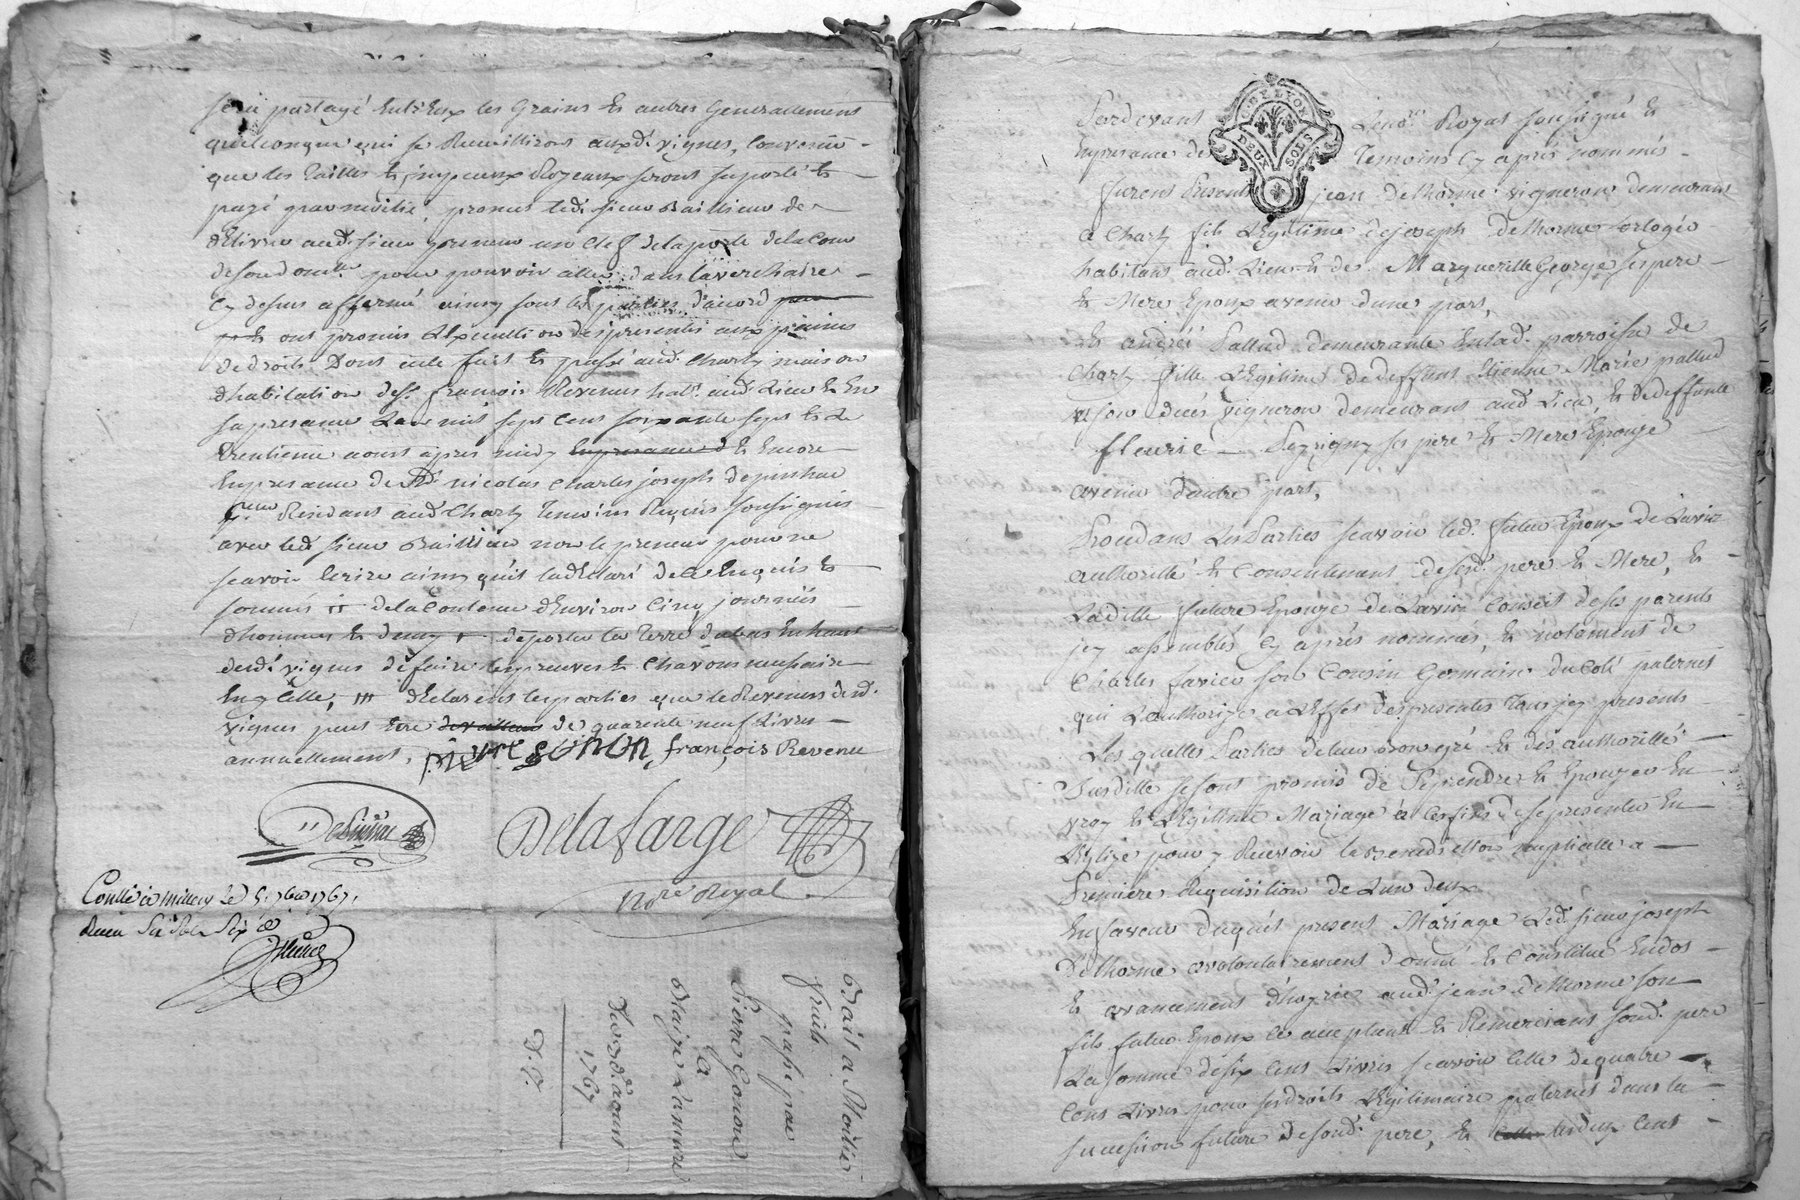 sera partagé entr'eux les grains et autres generalement
quelconque qui se Recueilliront auxd. vignes, convenu
que les tailles et impeaux Royeaux seront suporté et
payé par moitié, promet led. sieur Baillieur de
delivrer aud. sieur preneur un clef de la porte de la cour
de son dom.lle pour pouvoir aller dans la verchaire
cy dessus affermé ainsy sont les parties d'acord
ont promis L'Execution des presentes aux peines
de droits Dont acte fait et passé aud. Charly maison
d'habitation de s. françois Revenu hab. aud. Lieu
mil sept cent soixante sept et le
trentieme aoust apres midy en presance et Encore
En presance de Mr nicolas charles joseph depinhac
Residant aud. Charly Temoins Requis soussignés
avec led. sieur Baillieur non le preneur pour ne
scavoir Ecrire ainsy qu'il l'a declaré de ce Enquis et
sommé de la contenue d'Environ cinq journées
d'hommes et demy de porter la Terre du bas En haut
desd. vignes de faire les preuves et chavons nessaire
En y celle, declarent les parties que le Revenus desd.
vignes peut être de quarente neuf Livres
annuellement. pierre gonon, françois Revenu
Depinhac
Delafarge
no.re Royal
Conllé a millery le 5. 7bre 1767.
Receu
Bail a Moitié
fruits
passé par
Pierre Gonon
a
Blaize Lamure
Du 30.e d'aoust
1767
D. G.
G. DE LYON
DEUX SOLS
Pardevant Le no.re Royal soussigné et
En presance des Temoins cy après nommés
furent Present jean delhorme vigneron demeurant
a Charly fils Légitime de joseph delhorme horlogeo
habitant aud. Lieu et de Margueritte George ses pere
et Mere Epoux avenir d'une part,
et andréé Pallud demeurante En lad. parroisse de
Charly fille Légitime de deffunt Etienne Marie pallud
a son deces vigneron demeurant aud. Lieu, et de deffunte
fleurie ses pere et Mere Epouze
avenir d'autre part,
Procedans Les Parties scavoir led. futur Epoux de L'avis
authorité et Consentement desesd. pere et Mere, et
Laditte future Epouze de L'avis Conseil de ses parents
icy assemblés cy après nommés, et notament de
Charles favier son Cousin Germain du coté paternel
qui L'authorize a L'effet des presentes Tous icy presents
Les quelles Parties de leur bon gré et des authorité
Susditte se sont promis de se prendre et Epouzer En
vray et Légitime Mariage a ces fins de se presenter En
L'Eglize pour y Recevoir la Benediction nuptialle a
Premiere Requisition de L'un d'eux
En faveur duquel present Mariage Led. sieur joseph
Delhorme a volontairement donné et constitué En dot
et avancement d'hoyrie aud. jean Delhorme son
fils futur Epoux ce acceptant et Remerciant sond. pere
La somme de six cent Livres scavoir celle de quatre
cent Livres pour ses droits Légitimaire paternel dans la
succession future de sond. pere, et les deux cent